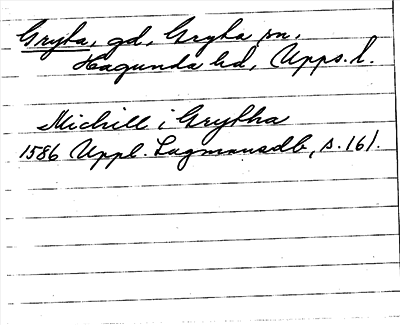 Gryta, gd, Gryta sn,
Hagunda hd, Upps. l.
Michill i Grytha
1586 Uppl. Lagmansdb, s. 161.